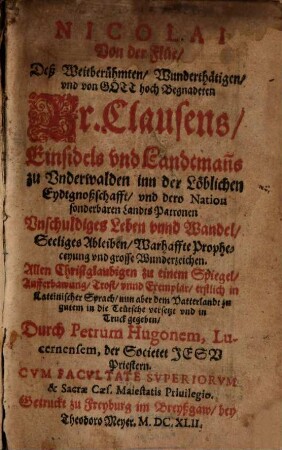 NICOLAI
Von der Flüe/
Deß Weitberühmten/ Wunderthätigen/
vnd von GOTT hoch Begnadeten
Br. Clausens/
Einsidels vnd Landtmañs
zu Vnderwalden inn der Löblichen
Eydtgnoßschafft/ vnd dero Nation
sonderbaren Landts Patronen
Vnschuldiges Leben vnnd Wandel/
Seeliges Ableiben/ Warhaffte Prophe-
ceyung vnd grosse Wunderzeichen.
Allen Christglaubigen zu einem Spiegel/
Aufferbawung/ Trost/ vnnd Exemplar/ erstlich in
Lateinischer Sprach/ nun aber dem Vatterlandt zu
gutem in die Teütsche versetzt vnd in
Truck gegeben/
Durch Petrum Hugonem, Lu-
cernensem, der Societet IESV
Priestern.
CVM FACVLTATE SVPERIORVM
& Sacræ Cæs. Maiestatis Priuilegio.
Getruckt zu Freyburg im Breyßgaw/ bey
Theodoro Meyer. M. DC. XLII.